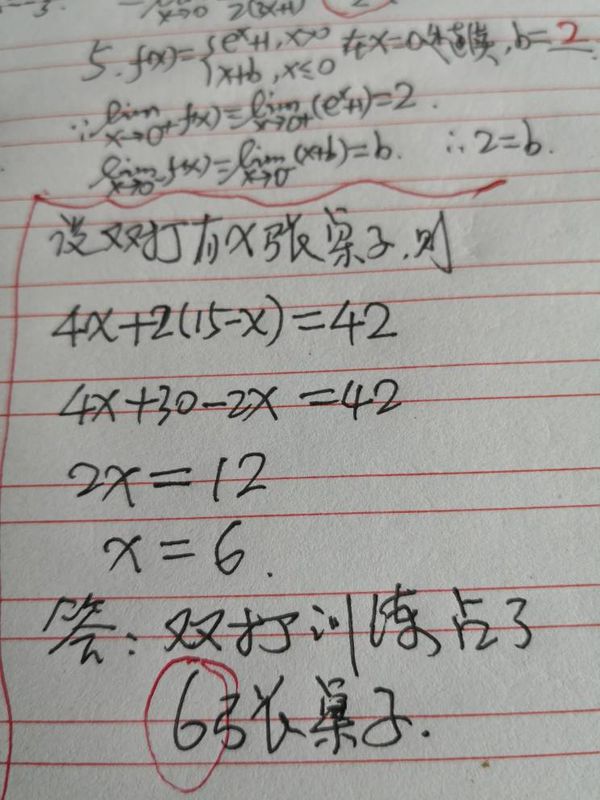 x→0 2(3x+1) 2
5. f(x)={e^x+1, x>0 在x=0处连续, b=2
x+b, x≤0
∵lim x→0+ f(x)=lim x→0+ (e^x+1)=2.
lim x→0- f(x)=lim x→0- (x+b)=b. ∴2=b.
设双打有x张桌子,则
4x+2(15-x)=42
4x+30-2x=42
2x=12
x=6.
答:双打训练占了
6张桌子.